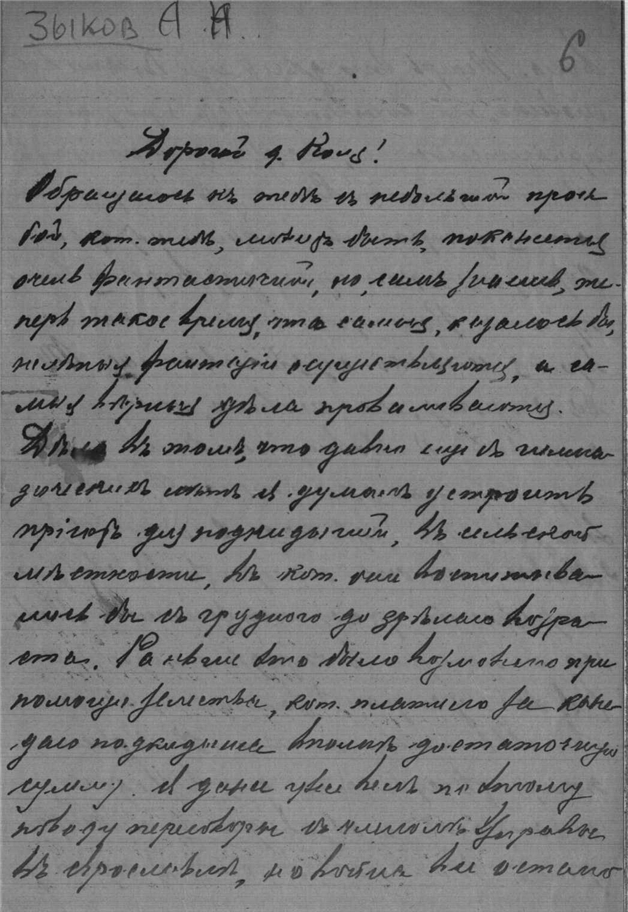 Зыков А А.
6
Дорогой д. Коля!
Обращаюсь къ тебѣ съ небольшой прось-
бой, кот. тебѣ, можетъ быть, покажется
очень фантастичной, но, самъ знаешь, те-
перь такое время, что самыя, казалось бы,
нелѣпыя фантазіи осуществляются, а са-
мыя вѣрныя дѣла проваливаются.
Дѣло въ томъ, что давно еще съ гимна-
зическихъ лѣтъ я думалъ устроить
пріютъ для подкидышей, въ сельской
мѣстности, въ кот. они воспитыва-
лись бы съ грудного до зрѣлаго возра-
ста. Раньше это было возможно при
помощи земства, кот. платило за каж-
даго подкидыша вполнѣ достаточную
сумму. Я даже уже велъ по этому
поводу переговоры съ членомъ Управы
въ Ярославлѣ, но война все остано